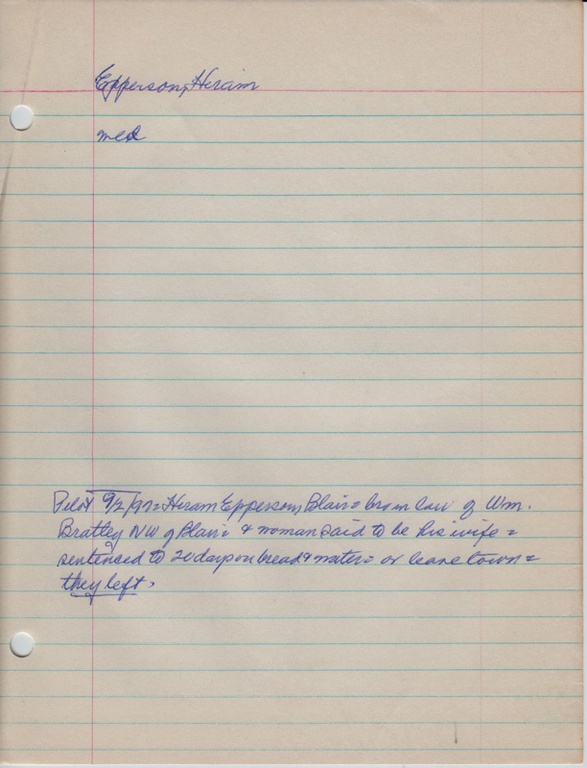 Epperson, Hiram
med
Pilot 9/2/97= Hiram Epperson, Blair= bro in law of Wm.
Bratley NW of Blair= & woman said to be his wife=
sentenced to 20 days on bread & water= or leave town=
they left.